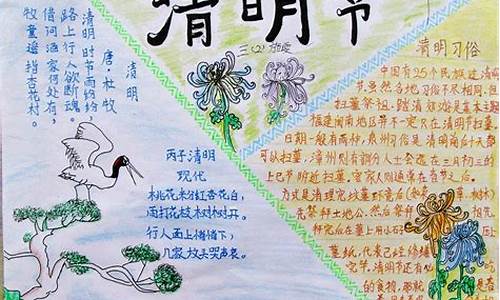 清明节
三(2)
清明
唐·杜牧
清明时节雨纷纷,
路上行人欲断魂。
借问酒家何处有,
牧童遥指杏花村。
丙子清明
现代
桃花粉红杏花白,
雨打花枝树树开。
行人面上
几家坟头哭声哀。
清明习俗
中国有25个民族过清明
节,虽然各地习俗不尽相同,但
扫墓祭祖、踏清郊游是基本主
福建闽南地区并不一定只在清明节扫墓
日期一般有两种,泉州习俗是清明前后十天都
可以扫墓,漳州则有部分人士会选在三月初三的
上巳节附近扫墓,客家人则通常在春节之后。
方式是清理完坟墓环境后(如
先祭拜土地公,然后祭拜
拜完后在墓上用小石
墓纸,代表已经修缮
完毕,清明节还有
的食物,那就